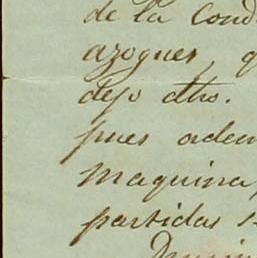 de la Cond
azogues, q
dejo dho.
pues adem
maquina,
partidas s